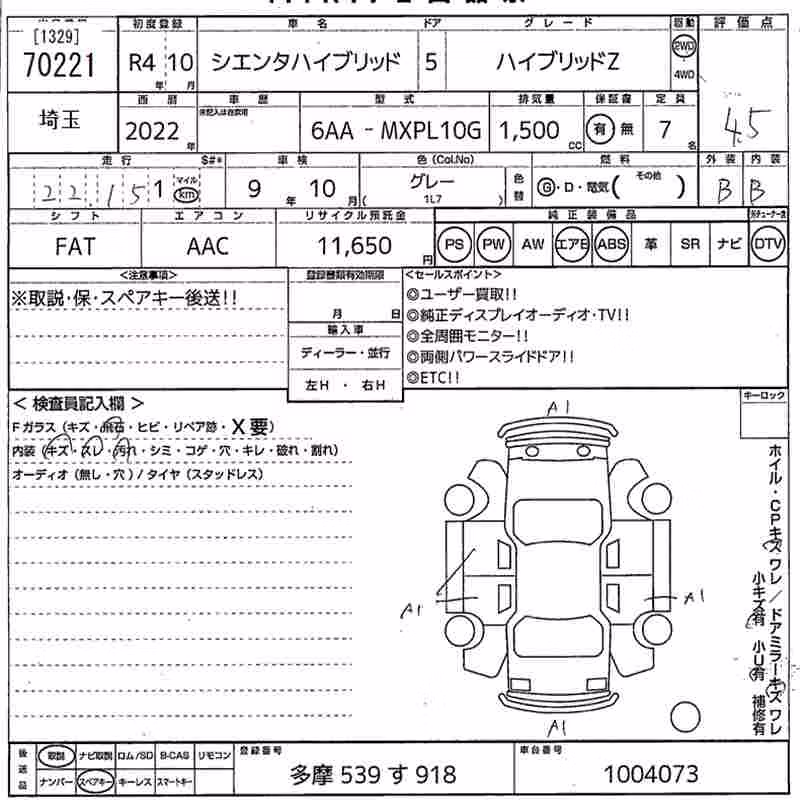 [1329]
70221
初度登録
R4 10
年 月
車名
シエンタハイブリッド
ドア
5
グレード
ハイブリッドZ
駆動
2WD
4WD
評価点
4.5
埼玉
西暦
2022 年
車歴
型式
6AA - MXPL10G
排気量
1,500 CC
保証書
有 無
定員
7 名
走行
$#*
22.15 1
マイル
km
車検
9 年 10 月
色(Col.No)
グレー
( 1L7 )
色替
燃料
G・D・電気( その他 )
外装 内装
B B
シフト
FAT
エアコン
AAC
リサイクル預託金
11,650 円
純正装備品
PS PW AW エアB ABS 革 SR ナビ DTV
<注意事項>
※取説・保・スペアキー後送!!
登録書類有効期限
月 日
輸入車
ディーラー・並行
左H ・ 右H
<セールスポイント>
◎ユーザー買取!!
◎純正ディスプレイオーディオ・TV!!
◎全周囲モニター!!
◎両側パワースライドドア!!
◎ETC!!
< 検査員記入欄 >
Fガラス(キズ・飛石・ヒビ・リペア跡・X要)
内装(キズ・スレ・汚れ・シミ・コゲ・穴・キレ・破れ・割れ)
オーディオ(無し・穴)/タイヤ(スタッドレス)
キーロック
A1
A1
A1
A1
ホイル・CPキズワレ/ドアミラーキズワレ
小キズ有 小U有 補修有
後送品
取説 ナビ取説 ロム/SD B-CAS リモコン
ナンバー スペアキー キーレス スマートキー
登録番号
多摩 539 す 918
車台番号
1004073